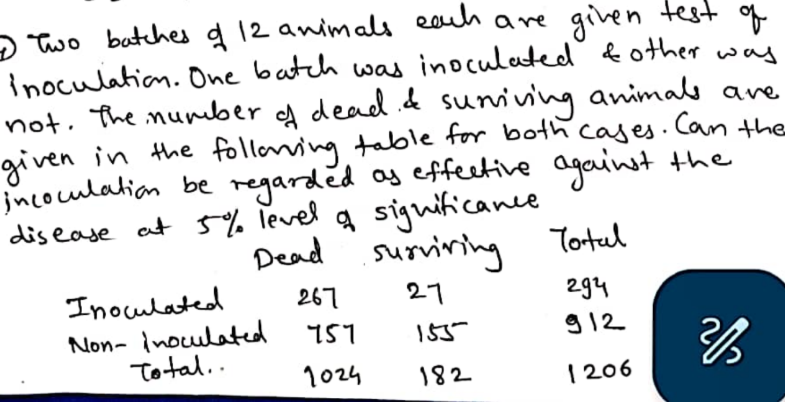 Two batches of 12 animals each are given test of
inoculation. One batch was inoculated & other was
not. The number of dead & surviving animals are
given in the following table for both cases. Can the
incoculation be regarded as effective against the
disease at 5% level of significance
Dead surviving Total
Inoculated 267 27 294
Non-inoculated 757 155 912
Total.. 1024 182 1206